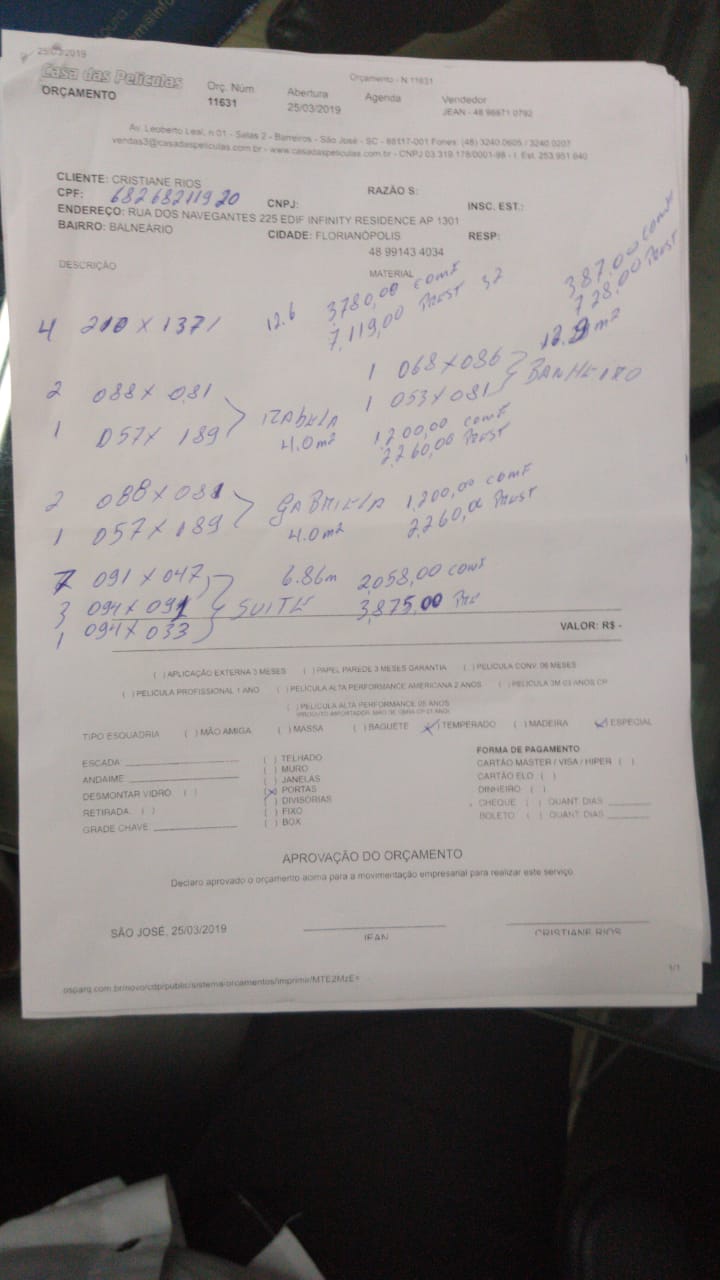 25/03/2019
Orçamento - N 11631
Casa das Películas
ORÇAMENTO
Orç. Núm
11631
Abertura
25/03/2019
Agenda
Vendedor
JEAN - 48 96671 0792
Av. Leoberto Leal, n 01 - Salas 2 - Barreiros - São José - SC - 88117-001 Fones: (48) 3240.0605 / 3240.0207
vendas3@casadaspeliculas.com.br - www.casadaspeliculas.com.br - CNPJ 03.319.178/0001-98 - I. Est. 253.951.640
CLIENTE: CRISTIANE RIOS
RAZÃO S:
CPF: 68268211920
CNPJ:
INSC. EST.:
ENDEREÇO: RUA DOS NAVEGANTES 225 EDIF INFINITY RESIDENCE AP 1301
BAIRRO: BALNEÁRIO
CIDADE: FLORIANÓPOLIS
RESP:
48 99143 4034
DESCRIÇÃO
MATERIAL
4 210 X 1371 12.6 3.780,00 COMF
7.119,00 PREST
387,00 COMF
728,00 PREST
1 068 X 086
1 053 X 081 BANHEIRO
2 088 X 081
1 057 X 189
4.0 m² 1.200,00 COMF
2.260,00 PREST
2 088 X 081
1 057 X 189
GABRIELA 1.200,00 COMF
4.0 m² 2.260,00 PREST
7 091 X 047 6.86m 2.058,00 COMF
3 094 X 091 SUITE 3.875,00
1 094 X 033
VALOR: R$ -
( ) APLICAÇÃO EXTERNA 3 MESES ( ) PAPEL PAREDE 3 MESES GARANTIA ( ) PELÍCULA CONV. 06 MESES
( ) PELICULA PROFISSIONAL 1 ANO ( ) PELÍCULA ALTA PERFORMANCE AMERICANA 2 ANOS ( ) PELÍCULA 3M 03 ANOS CP
( ) PELÍCULA ALTA PERFORMANCE 05 ANOS
TIPO ESQUADRIA ( ) MÃO AMIGA ( ) MASSA ( ) BAGUETE (X) TEMPERADO ( ) MADEIRA (X) ESPECIAL
ESCADA:
ANDAIME
DESMONTAR VIDRO: ( )
RETIRADA: ( )
GRADE CHAVE:
( ) TELHADO
( ) MURO
( ) JANELAS
(X) PORTAS
( ) DIVISÓRIAS
( ) FIXO
( ) BOX
FORMA DE PAGAMENTO
CARTÃO MASTER / VISA / HIPER ( )
CARTÃO ELO ( )
DINHEIRO ( )
CHEQUE ( ) QUANT. DIAS
BOLETO ( ) QUANT. DIAS
APROVAÇÃO DO ORÇAMENTO
Declaro aprovado o orçamento acima para a movimentação empresarial para realizar este serviço.
SÃO JOSÉ, 25/03/2019
JEAN
CRISTIANE RIOS
osparq.com.br/novo/cdp/public/sistema/orcamentos/imprimir/MTE2MzE=
1/1